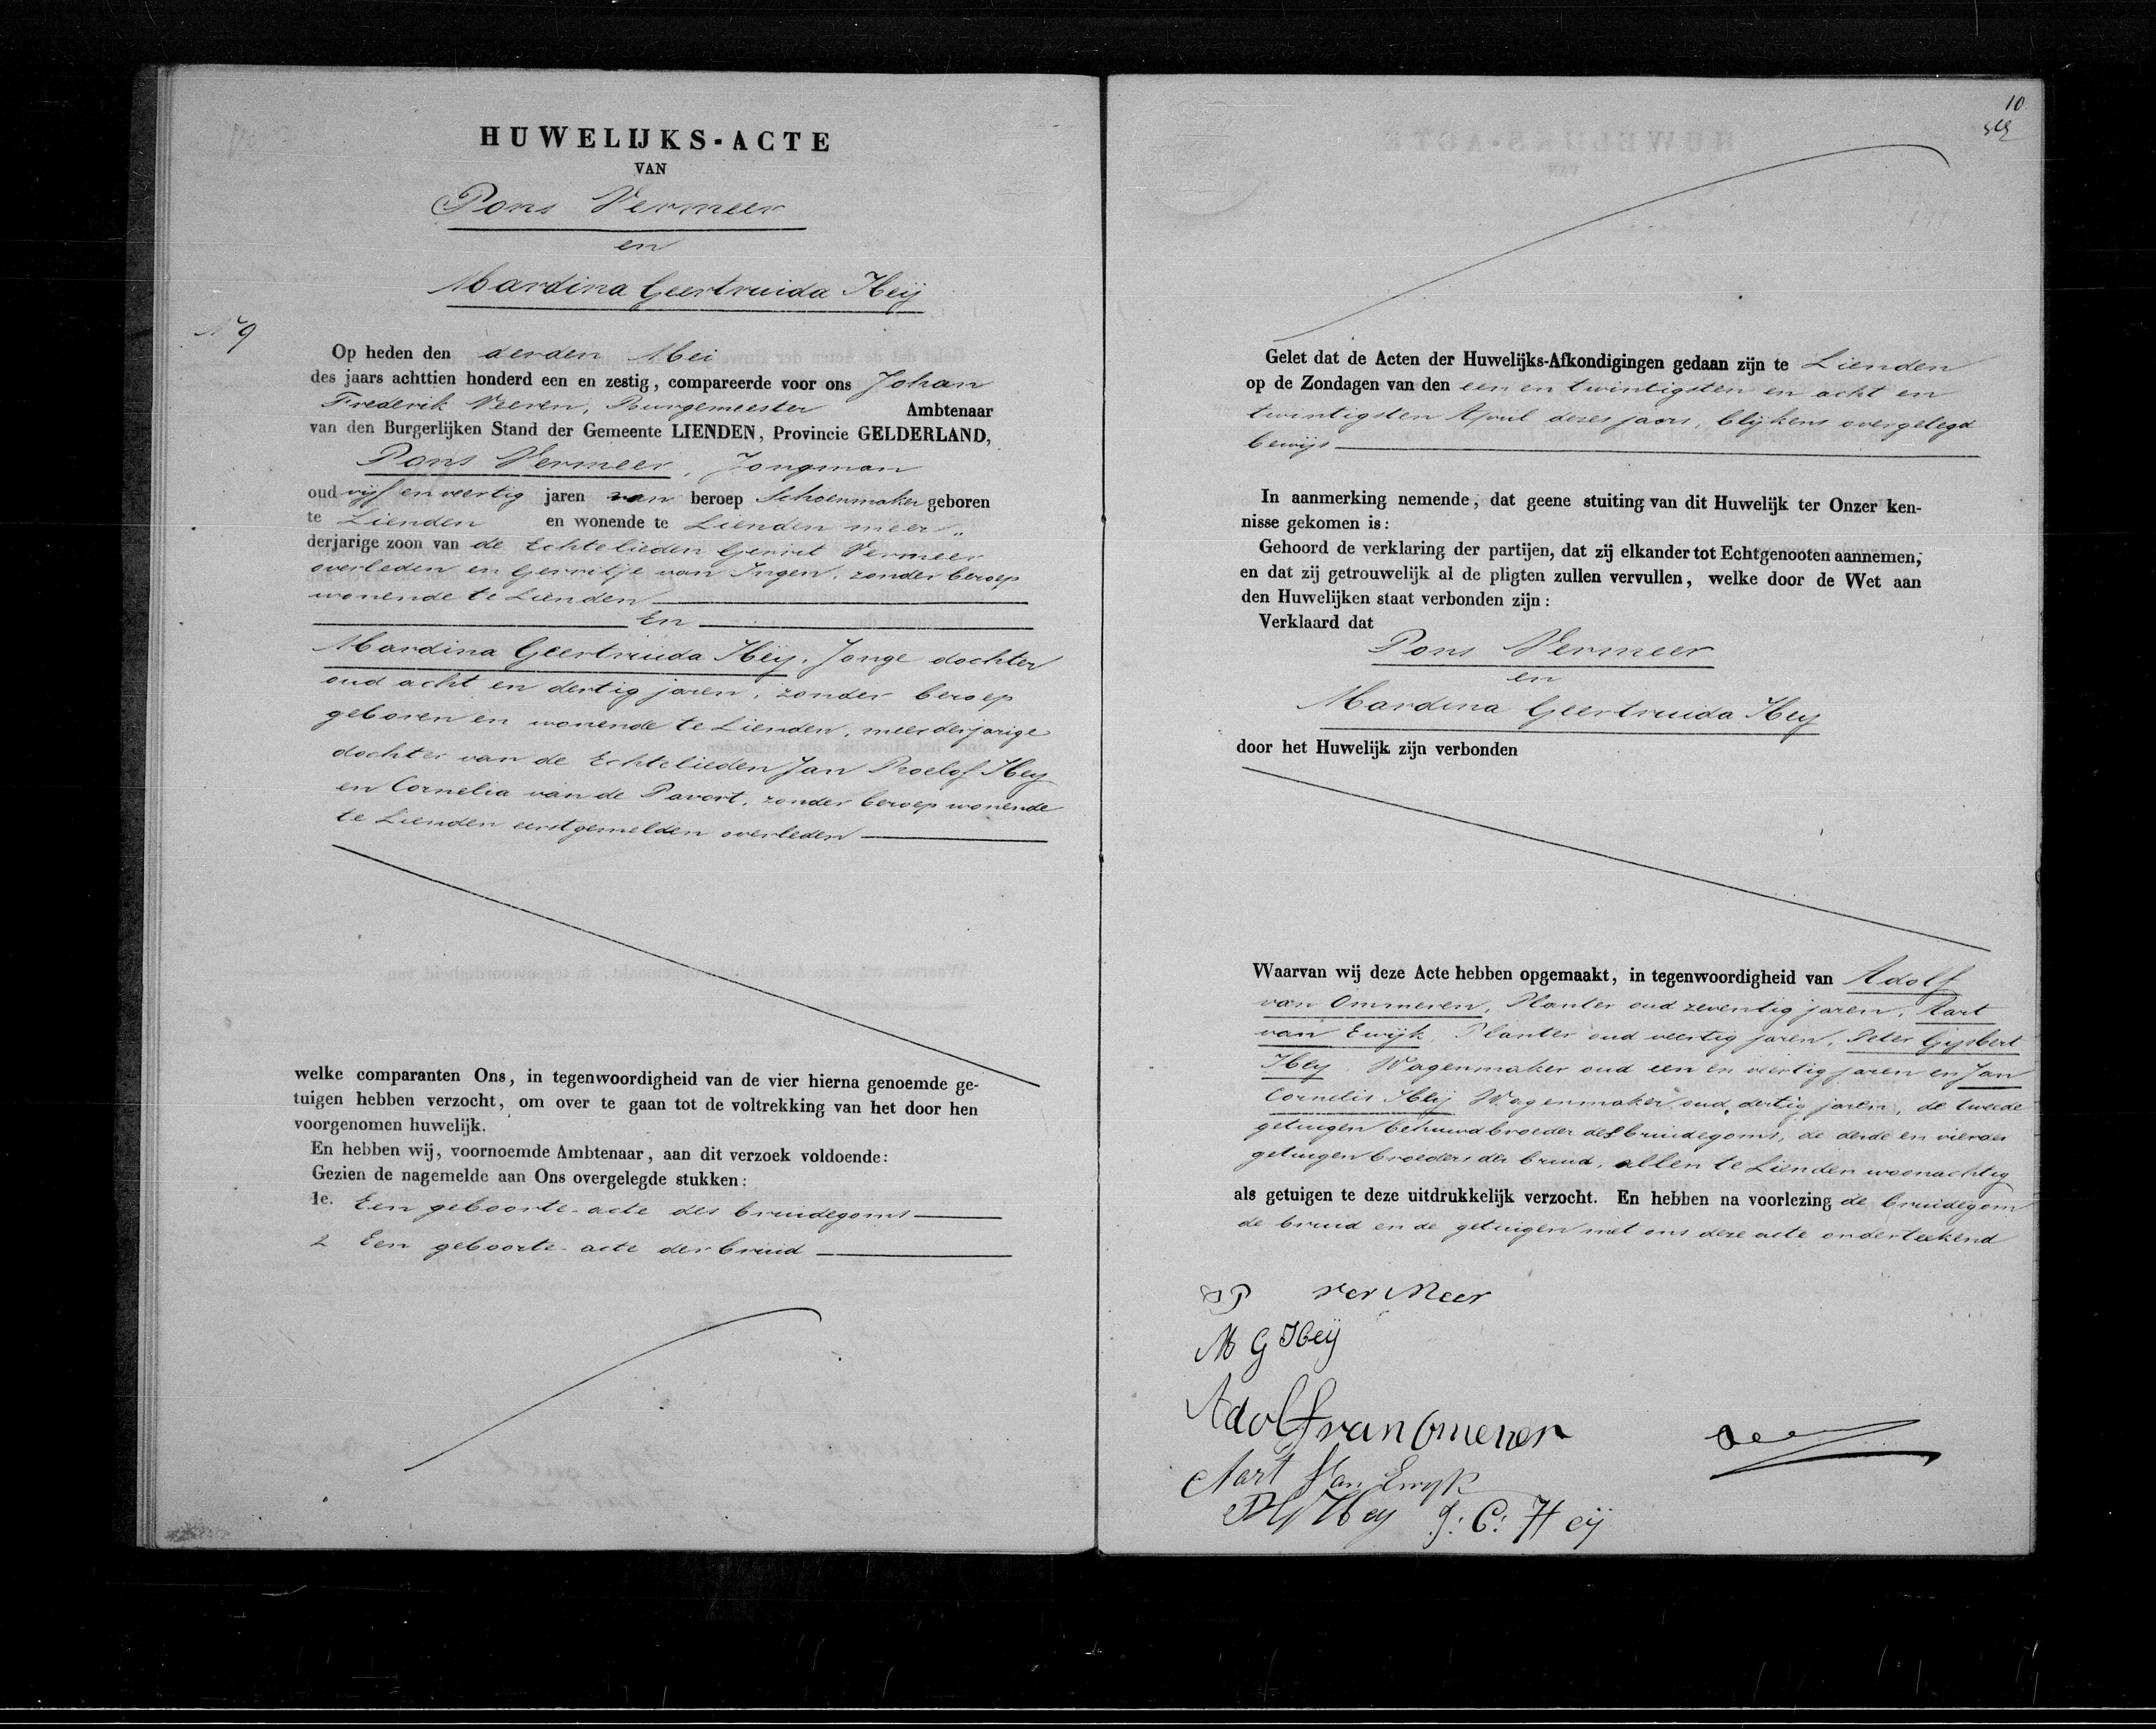 HUWELIJKS-ACTE
VAN
Pons Vermeer
en
Mardina Geertruida Heij
No 9
Op heden den derden Mei
des jaars achttien honderd een en zestig, compareerde voor ons Johan
Frederik Veeren, Burgemeester Ambtenaar
van den Burgerlijken Stand der Gemeente LIENDEN, Provincie GELDERLAND,
Pons Vermeer, Jongman
oud vijf en veertig jaren van beroep Schoenmaker geboren
te Lienden en wonende te Lienden meer„
derjarige zoon van de Echtelieden Gerrit Vermeer
overleden en Gerritje van Ingen, zonder beroep
wonende te Lienden
En
Mardina Geertruida Heij, Jonge dochter
oud acht en dertig jaren, zonder beroep
geboren en wonende te Lienden, meerderjarige
dochter van de Echtelieden Jan Roelof Heij
en Cornelia van de Pavort, zonder beroep wonende
te Lienden eerstgemelden overleden
welke comparanten Ons, in tegenwoordigheid van de vier hierna genoemde ge-
tuigen hebben verzocht, om over te gaan tot de voltrekking van het door hen
voorgenomen huwelijk.
En hebben wij, voornoemde Ambtenaar, aan dit verzoek voldoende:
Gezien de nagemelde aan Ons overgelegde stukken:
1e. Een geboorte-acte des bruidegoms
2 Een geboorte-acte der bruid
10
Gelet dat de Acten der Huwelijks-Afkondigingen gedaan zijn te Lienden
op de Zondagen van den een en twintigsten en acht en
twintigsten April dezes jaars, blijkens overgelegd
bewijs
In aanmerking nemende, dat geene stuiting van dit Huwelijk ter Onzer ken-
nisse gekomen is:
Gehoord de verklaring der partijen, dat zij elkander tot Echtgenooten aannemen,
en dat zij getrouwelijk al de pligten zullen vervullen, welke door de Wet aan
den Huwelijken staat verbonden zijn:
Verklaard dat
Pons Vermeer
en
Mardina Geertruida Hey
door het Huwelijk zijn verbonden
Waarvan wij deze Acte hebben opgemaakt, in tegenwoordigheid van Adolf
van Ommeren, Planter oud zeventig jaren, Aart
van Ewijk, Planter oud veertig jaren, Peter Gijsbert
Heij, Wagenmaker oud een en veertig jaren en Jan
Cornelis Heij Wagenmaker oud dertig jaren, de tweede
getuigen behuwdbroeder des bruidegoms, de derde en vierde
getuigen broeders der bruid, allen te Lienden woonachtig
als getuigen te deze uitdrukkelijk verzocht. En hebben na voorlezing de bruidegom
de bruid en de getuigen met ons deze acte onderteekend
P ver Meer
M G Heij
Adolf van Omeren
Aart Van Ewijk
PG Hey J: C: Heij